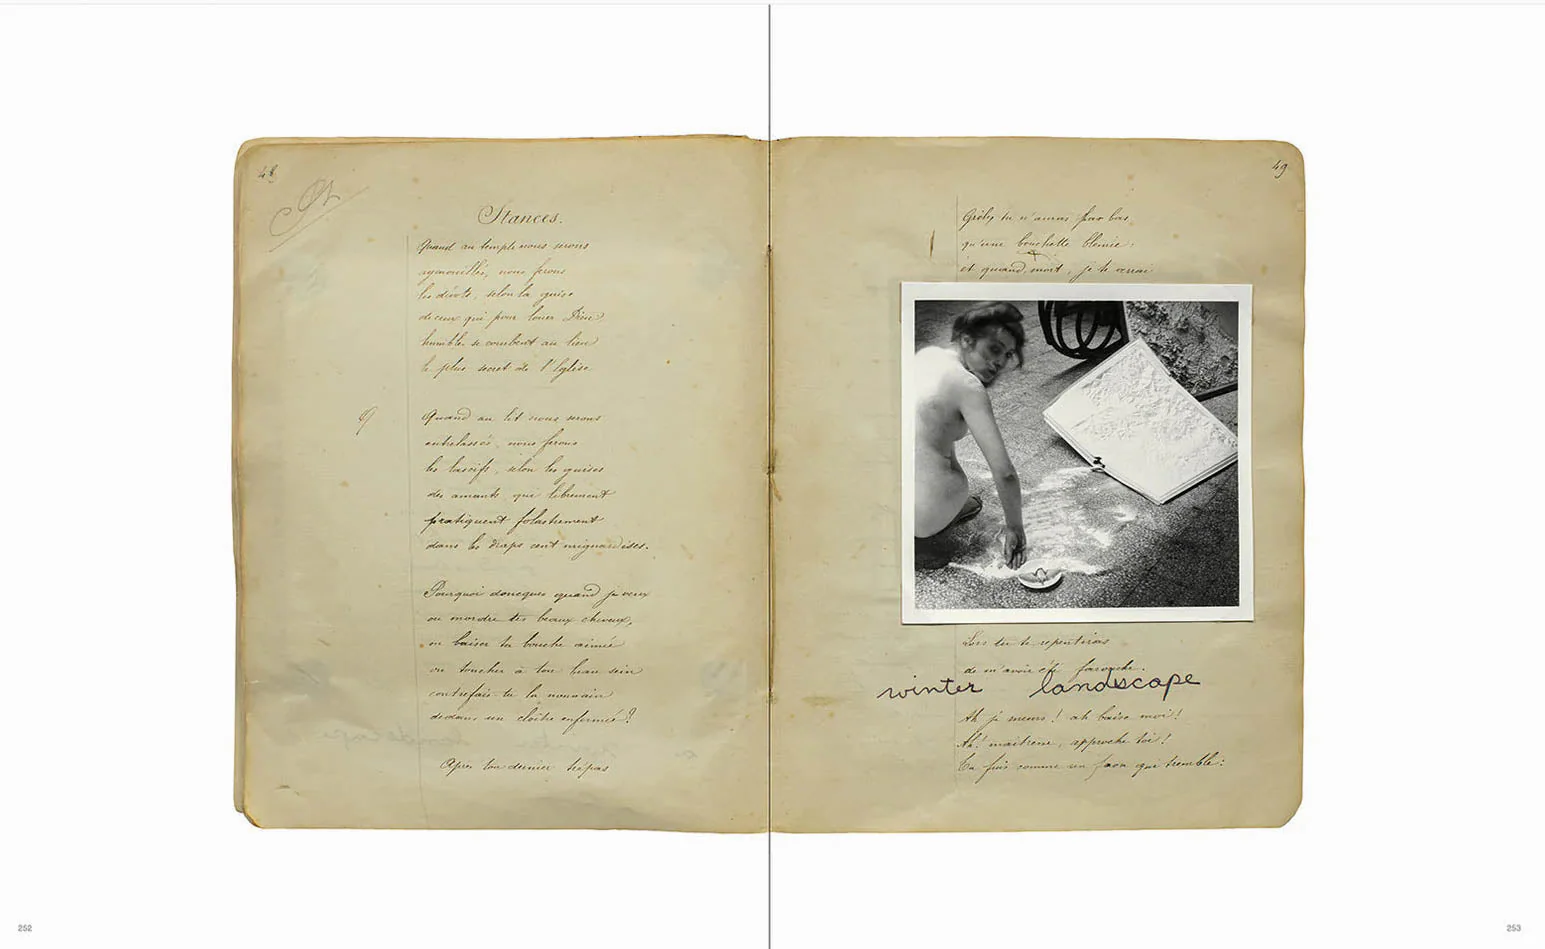 48
Stances.
Quand au temple nous serons
agenouillés, nous ferons
les dévots, selon la guise
de ceux qui pour louer Dieu
humbles se courbent au lieu
le plus secret de l'Eglise
Quand au lit nous serons
entrelassés, nous ferons
les lascifs, selon les guises
des amants, qui librement
pratiquent folastrement
dans les draps cent mignardises.
Pourquoi doncques quand je veux
ou mordre tes beaux cheveux,
ou baiser ta bouche aimée
ou toucher à ton beau sein
contrefais-tu la nonnain
dedans un cloître enfermée?
Après ton dernier trépas
49
grêle, tu n'auras par bas,
qu'une bouchette blêmie;
et quand, mort, je te verrai
Lors tu te repentiras
de m'avoir été farouche.
winter landscape
Ah je meurs! ah baise moi!
Ah! maîtresse, approche toi!
Tu fuis comme un faon qui tremble:
252
253